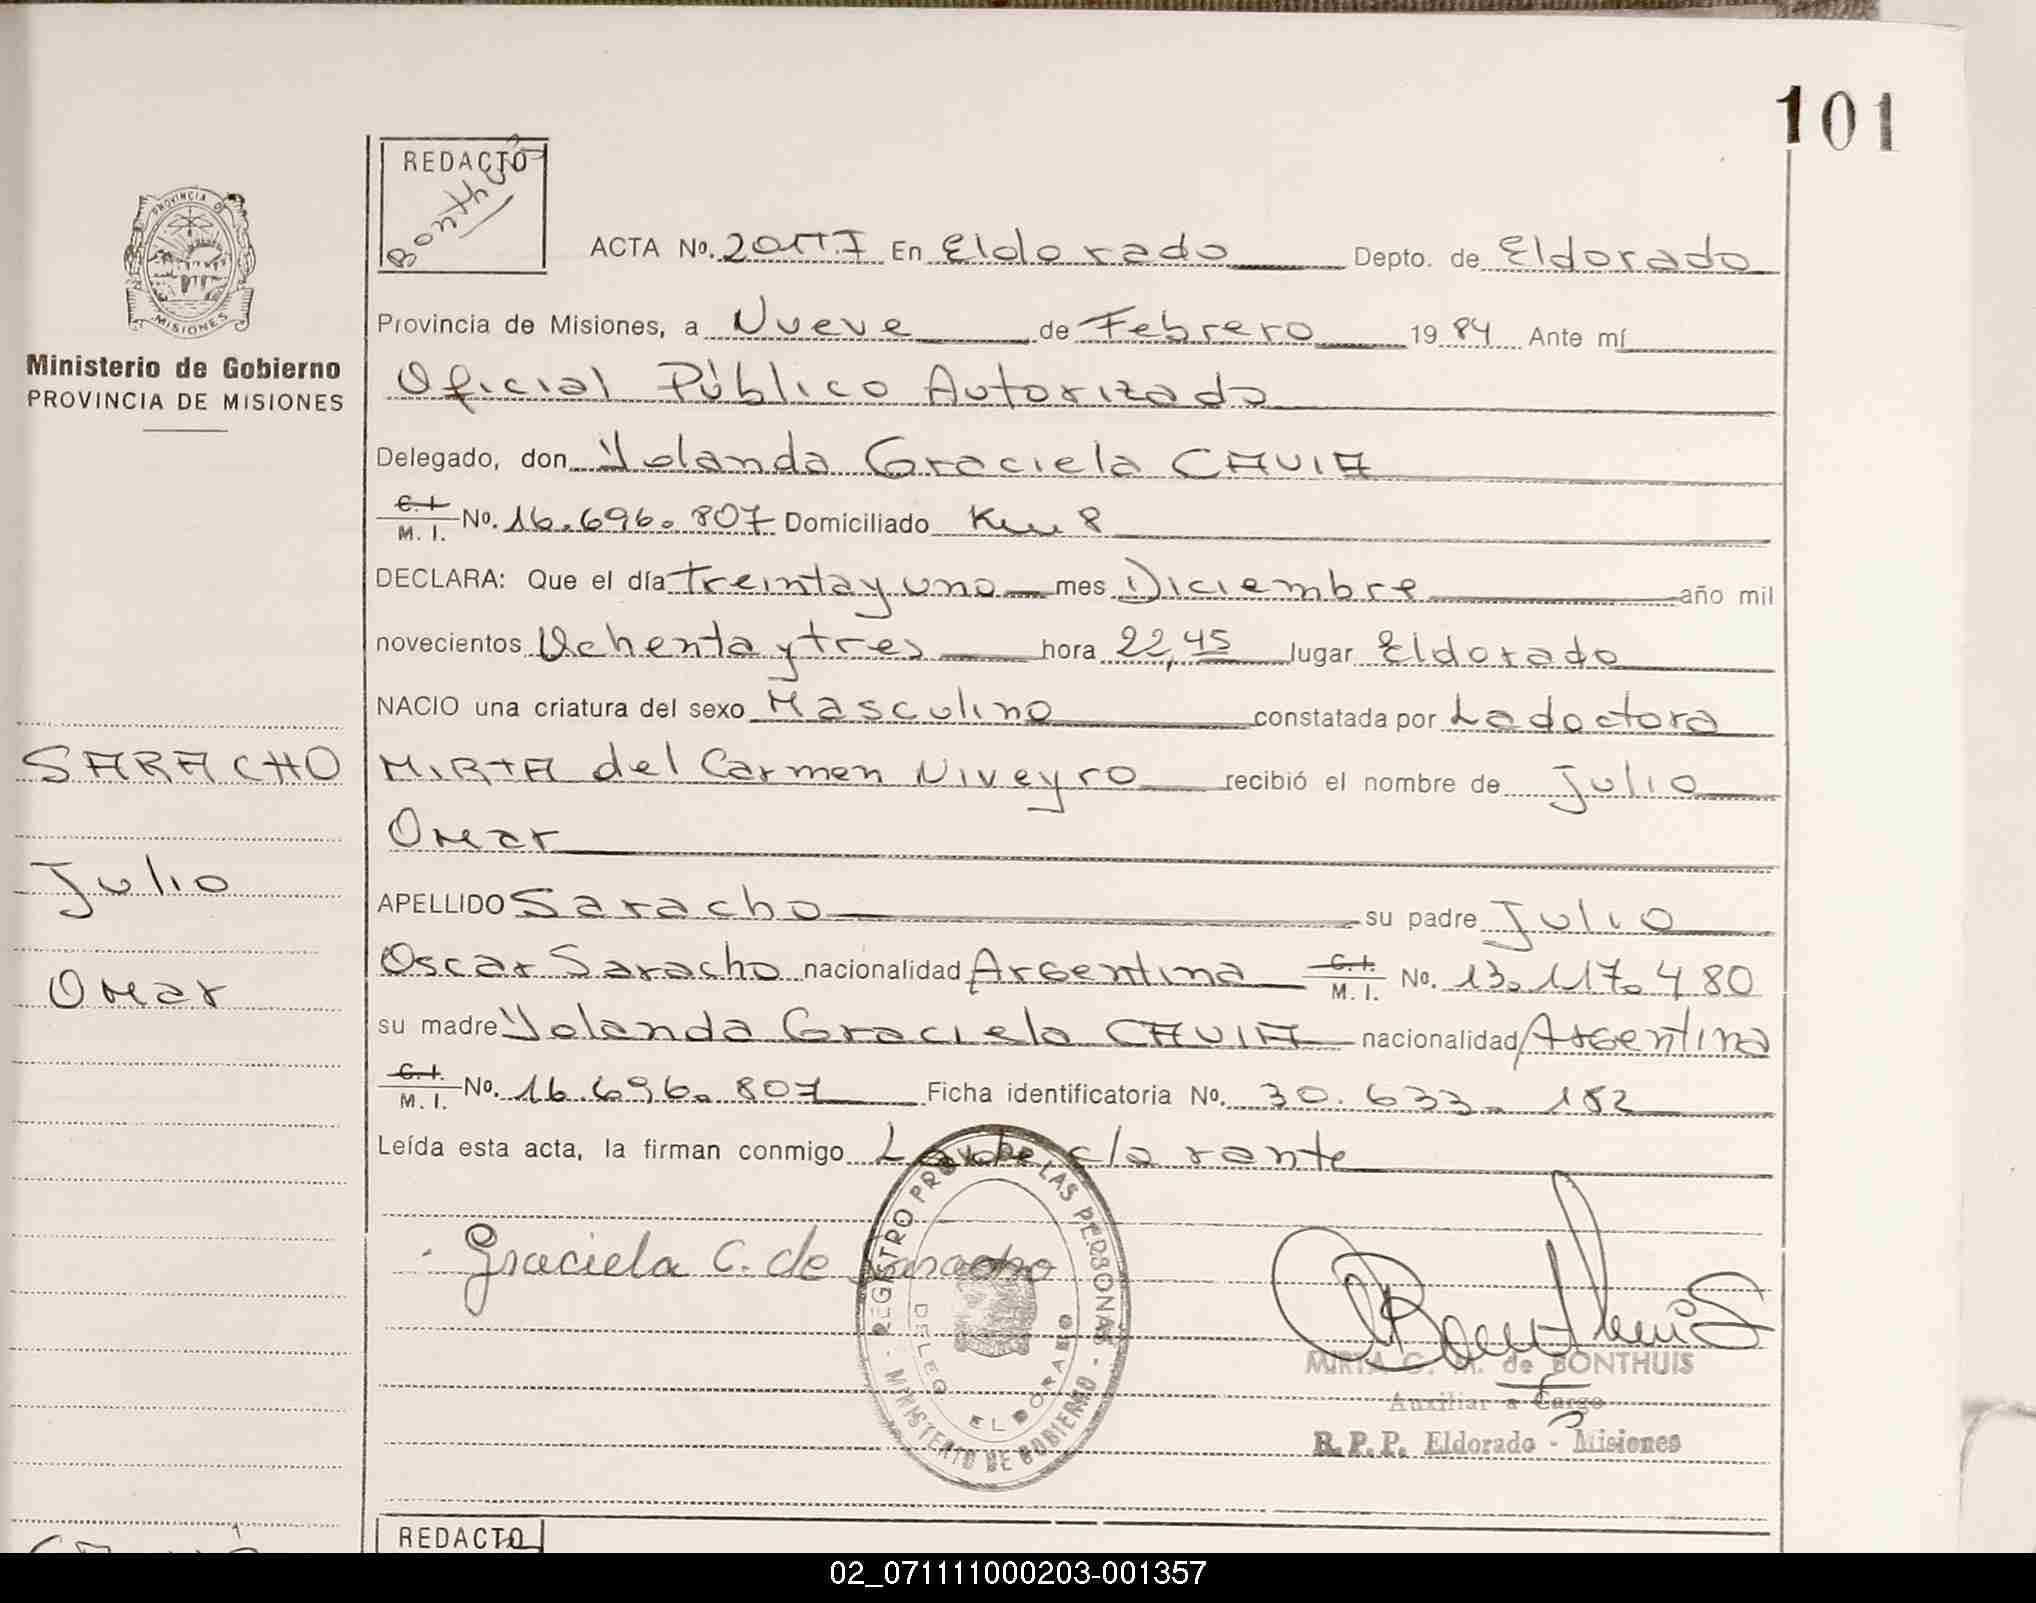 101
REDACTO
Bonthuis
ACTA No. 201 T.I En Eldorado Depto. de Eldorado
Provincia de Misiones, a Nueve de Febrero 1984 Ante mí
Oficial Público Autorizado
Delegado, don Yolanda Graciela CAVIA
C. I. M. I. No. 16.696.807 Domiciliado Km 8
DECLARA: Que el día treinta y uno mes Diciembre año mil
novecientos Ochenta y tres hora 22,45 lugar Eldorado
NACIO una criatura del sexo Masculino constatada por La doctora
MIRTA del Carmen Niveyro recibió el nombre de Julio
Omar
APELLIDO Saracho su padre Julio
Oscar Saracho nacionalidad Argentina C. I. M. I. No. 13.117.480
su madre Yolanda Graciela CAVIA nacionalidad Argentina
C. I. M. I. No. 16.696.807 Ficha identificatoria No. 30.633.182
Leída esta acta, la firman conmigo La declarante
Graciela C. de Saracho
REGISTRO PROV. DE LAS PERSONAS - MINISTERIO DE GOBIERNO -
DELEG. ELDORADO
Bonthuis
MIRTA C. M. de BONTHUIS
Auxiliar a Cargo
R.P.P. Eldorado - Misiones
REDACTO
PROVINCIA DE
MISIONES
Ministerio de Gobierno
PROVINCIA DE MISIONES
SARACHO
Julio
Omar
02_071111000203-001357